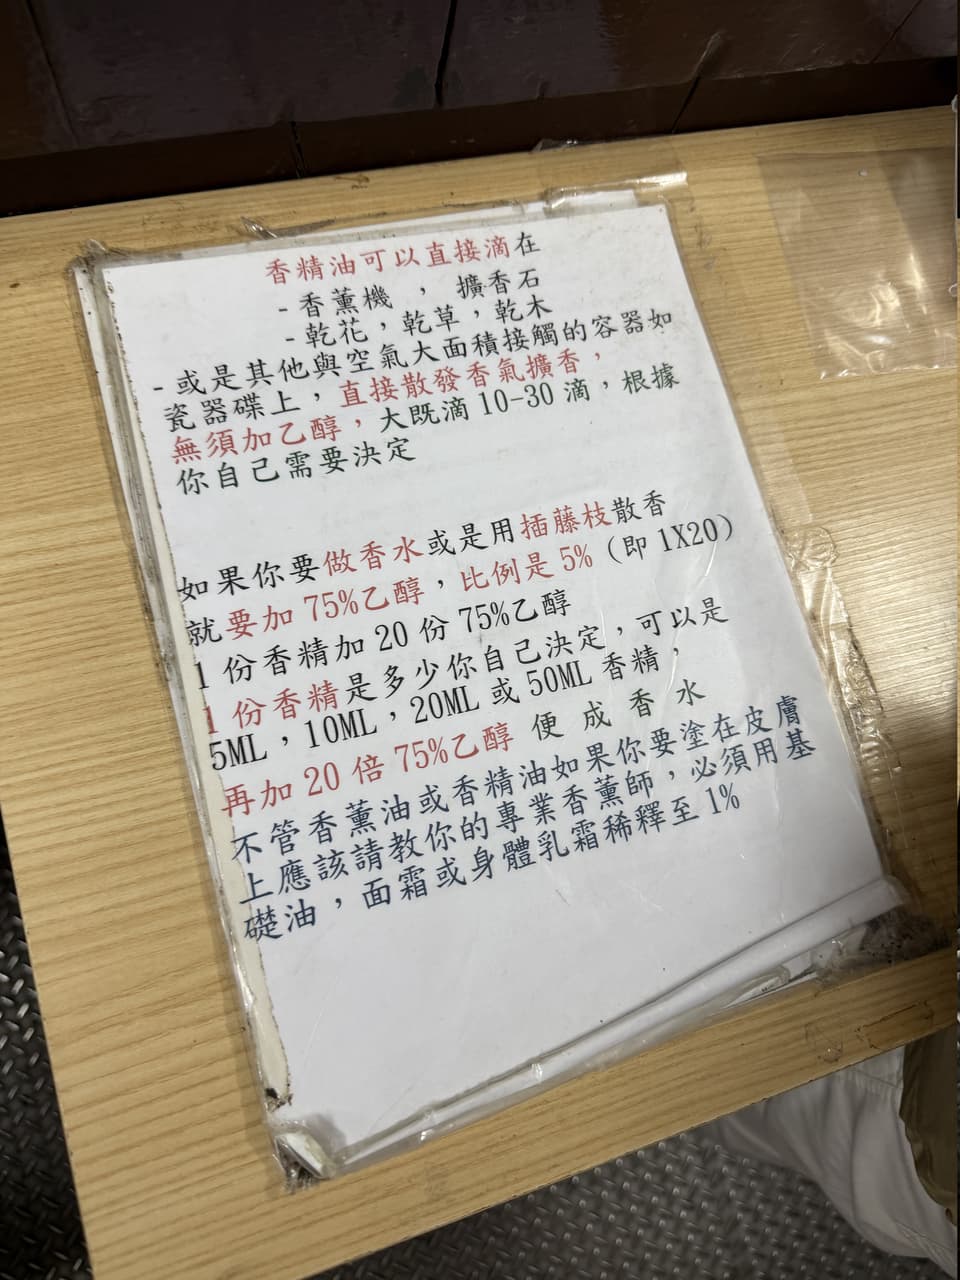 香精油可以直接滴在
-香薰機 ， 擴香石
-乾花，乾草，乾木
-或是其他與空氣大面積接觸的容器如
瓷器碟上，直接散發香氣擴香，
無須加乙醇，大既滴10-30滴，根據
你自己需要決定
如果你要做香水或是用插藤枝散香
就要加75%乙醇，比例是5%（即1X20）
1份香精加20份75%乙醇
1份香精是多少你自己決定，可以是
5ML，10ML，20ML或50ML香精，
再加20倍75%乙醇 便 成 香 水
不管香薰油或香精油如果你要塗在皮膚
上應該請教你的專業香薰師，必須用基
礎油，面霜或身體乳霜稀釋至1%